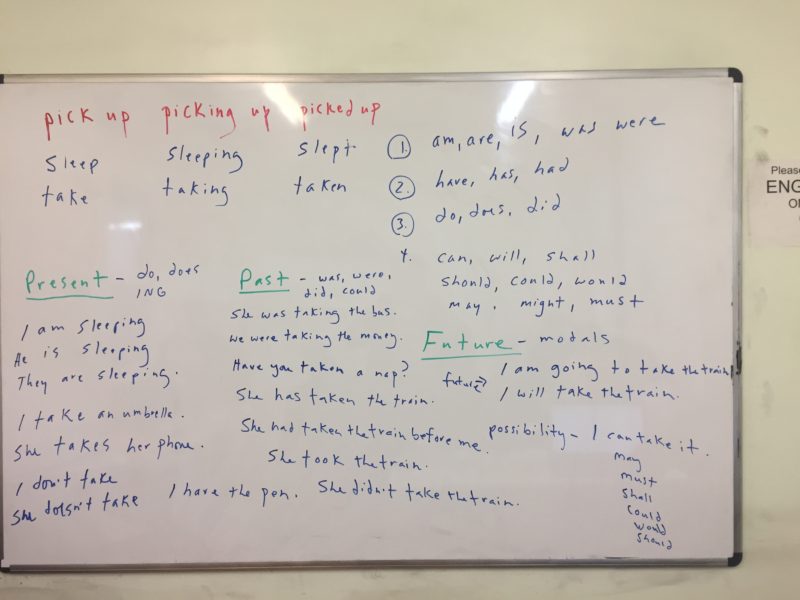 pick up picking up picked up
sleep sleeping slept
take taking taken
1. am, are, is, was were
2. have, has, had
3. do, does, did
4. can, will, shall
should, could, would
may, might, must
Present - do, does
ING
I am sleeping
He is sleeping
They are sleeping.
I take an umbrella.
She takes her phone.
I don't take
She doesn't take
Past - was, were,
did, could
She was taking the bus.
We were taking the money.
Have you taken a nap?
She has taken the train.
She had taken the train before me.
She took the train.
I have the pen. She didn't take the train.
Future - modals
future> I am going to take the train
I will take the train.
possibility - I can take it.
may
must
shall
could
would
should
Please
ENG